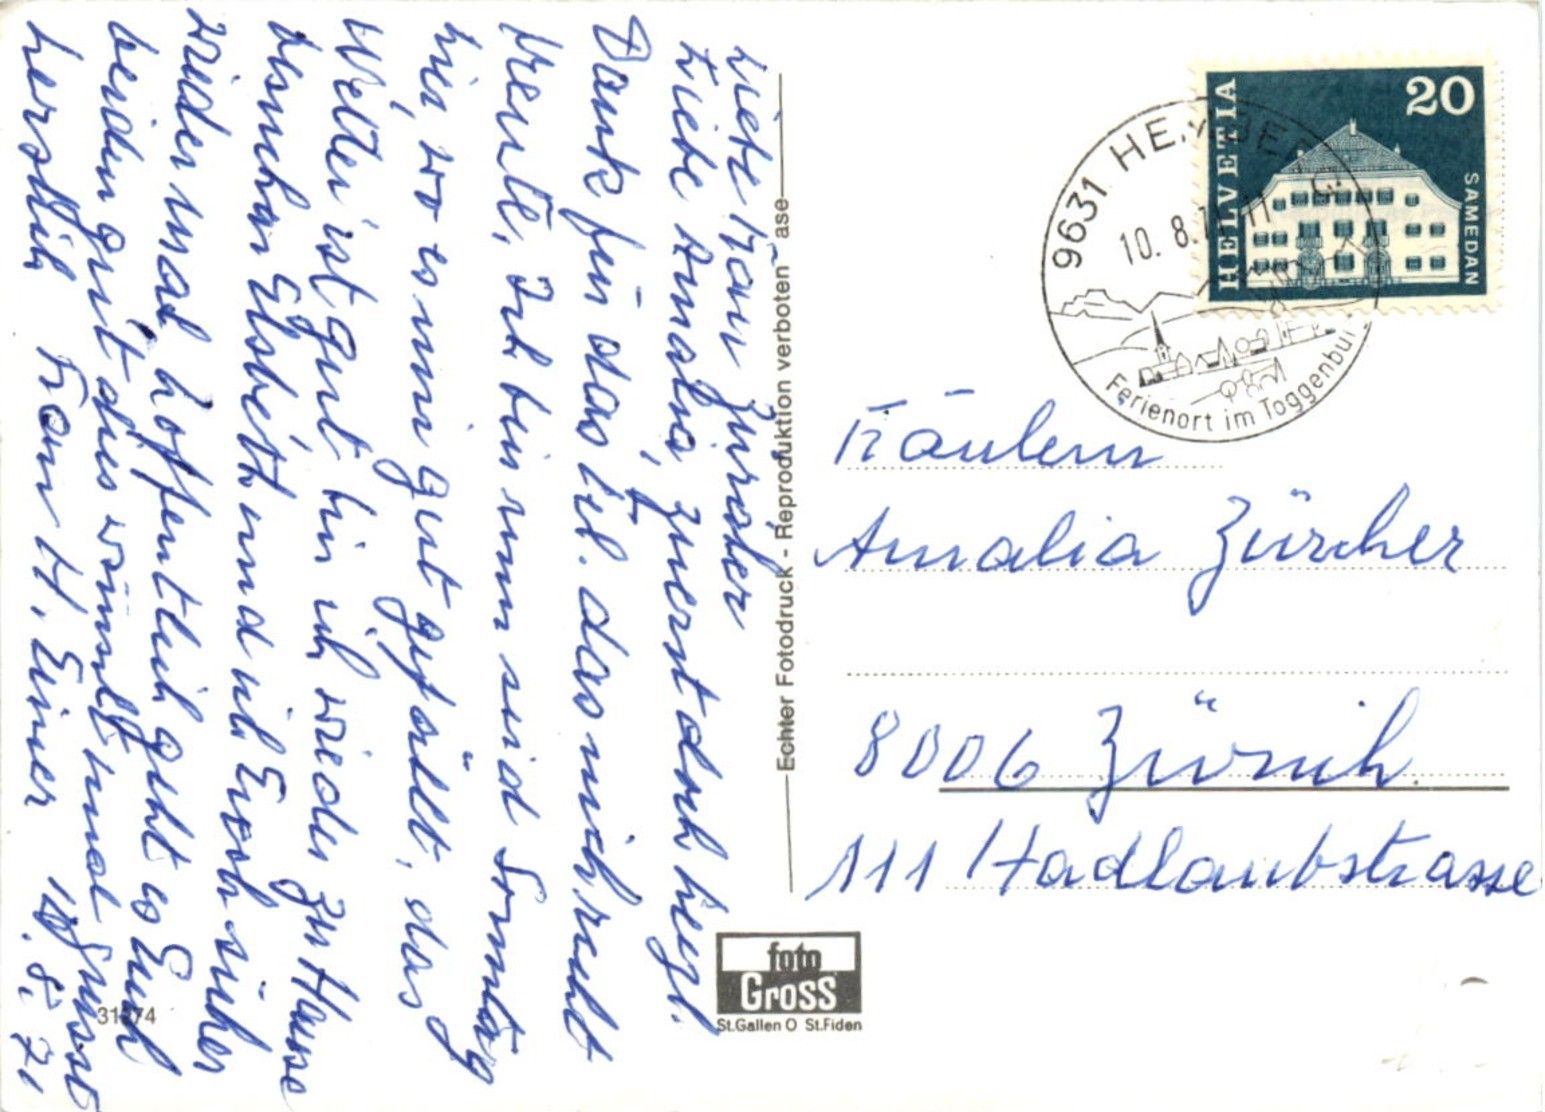 Liebe Frau Zürcher
Liebe Amalia, zuerst doch herzl.
Dank für das Tel. das mich recht
freute, Ich bin nun seid Sonntag
hier, wo es mir gut gefällt, das
Wetter ist gut, bin ich wieder zu Hause
besuchen Elsbeth und ich Euch sicher
wieder mal, hoffentlich geht es Euch
beiden gut dies wünscht und grüsst
herzlich Frau H.
10. 8. 71
31 74
Echter Fotodruck - Reproduktion verboten
ase
foto
Gross
St.Gallen O St.Fiden
HELVETIA
20
SAMEDAN
9631
10. 8.
Ferienort im Toggenbur
Fräulein
Amalia Zürcher
8006 Zürich
111 Hadlaubstrasse